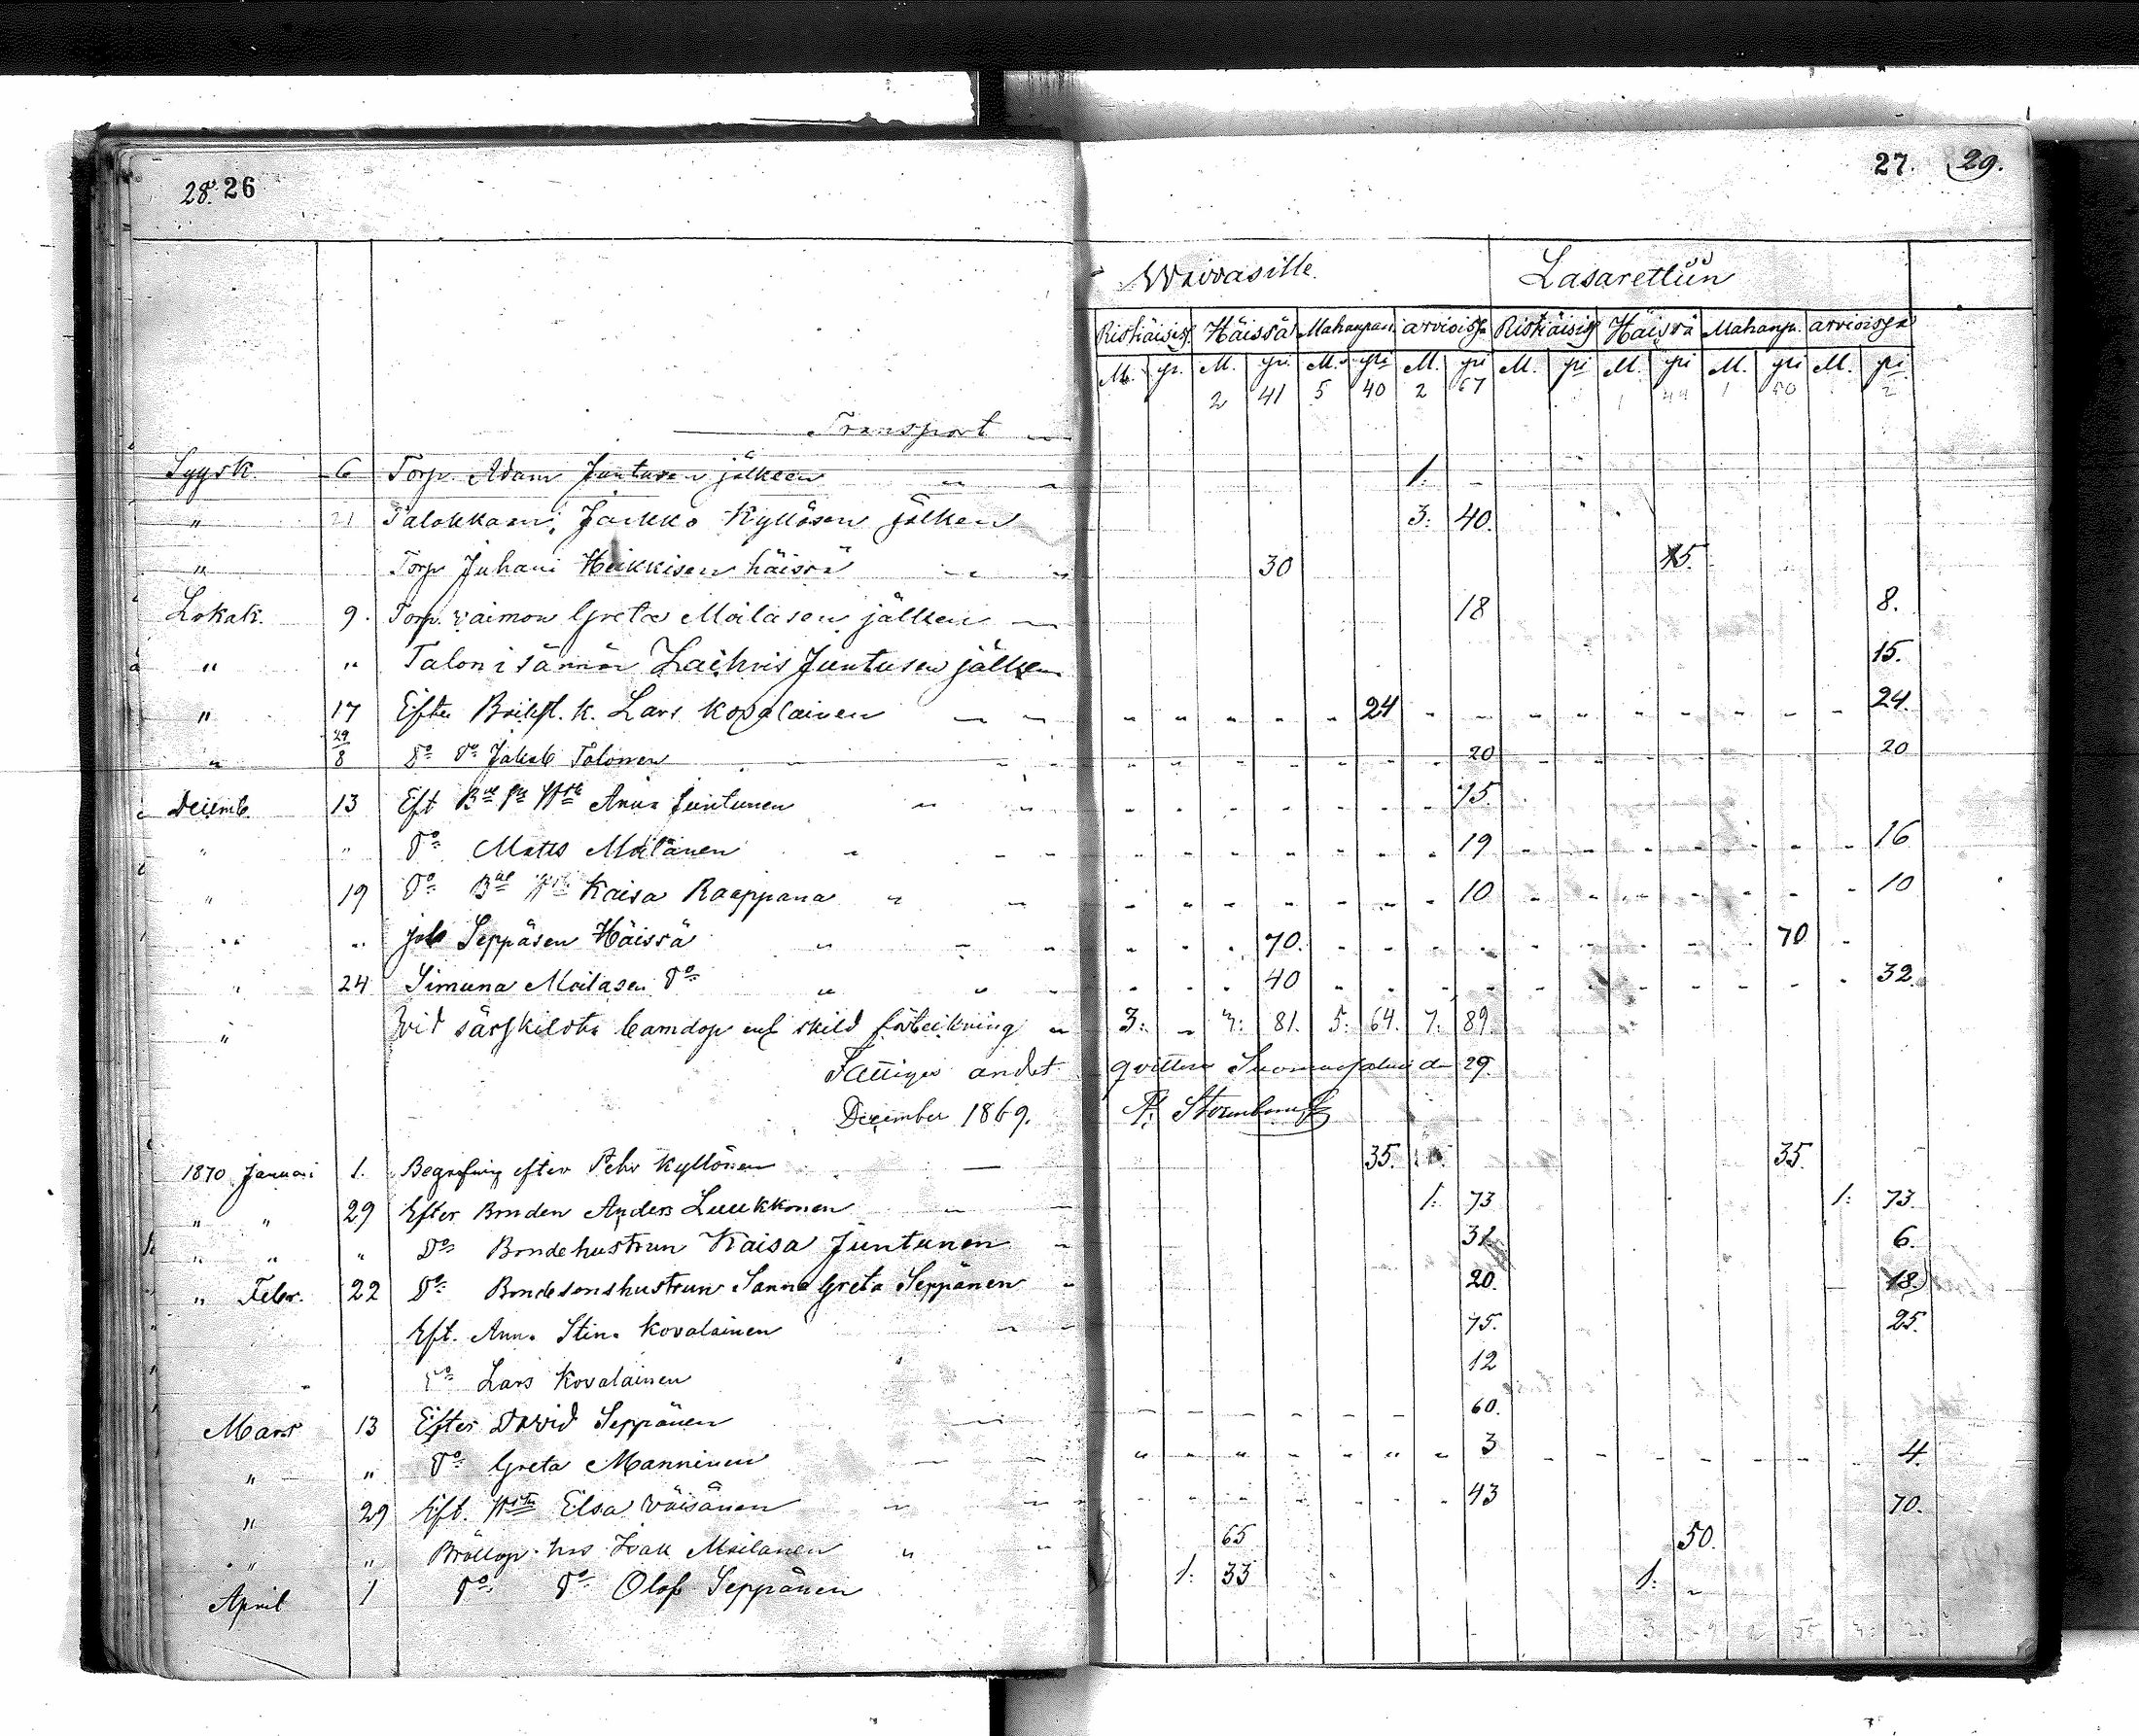 28. 26
27. 29.
Waivasille. Lasarettiin
Ristiäisis. Häissä Mahanpan. arvioissa Ristiäisis Häissä Mahanp. arvioissa
M. pi. M. pi. M. pi M. pi M. pi M. pi M. pi M. pi
Transport 2 41 5 40 2 67 1 44 1 50 2
Syysk. 6 Torp. Adam Juntusen jälkeen 1. -
" 21 Talokkaan Jaakko Kyllösen jälken 3: 40.
" Torp Juhani Heikkisen häissä 30 15.
Lokak. 9. Torp. vaimon Greta Moilasen jälken 18 8.
" " Talon isännän Juntusen jälken 15.
" 17 Efter K. Lars Kovalainen 24 24.
" 29/8 Do Do Jakob Talonen 20 20
Decemb. 13 Eft Anna Juntunen 15.
" " Do Matts Moilanen 19 16
" 19 Do Kaisa Raappana 10 10
" " Job Seppäsen Häissä 70. 70
" 24 Simuna Moilasen Do 40 32.
" Vid särskilda barndop enl skild förteckning 3: - 3: 81. 5: 64. 7: 89.
Fattiges andet qvitteras Suomusjalmi den 29.
December 1869.
1870 Januari 1. Begrafning efter Pehr Kyllönen 35. 35.
" " 29 Efter Bonden Anders Luukkonen 1: 73 1: 73.
" " " Do Bondehustrun Kaisa Juntunen 31. 6.
" Febr. 22 Do Bondesonshustrun Sanna Greta Seppänen 20. 18.
Eft. Anna Stina Kovalainen 75. 25.
Do Lars Kovalainen 12
Mars 13 Efter David Seppänen 60.
" " Do Greta Manninen 3 4.
" 29 Eft. Elsa Väisänen 43 70.
" " Bröllop hos Isak Moilanen 65 50.
April 1 Do Do Olof Seppänen 1: 33 1: -